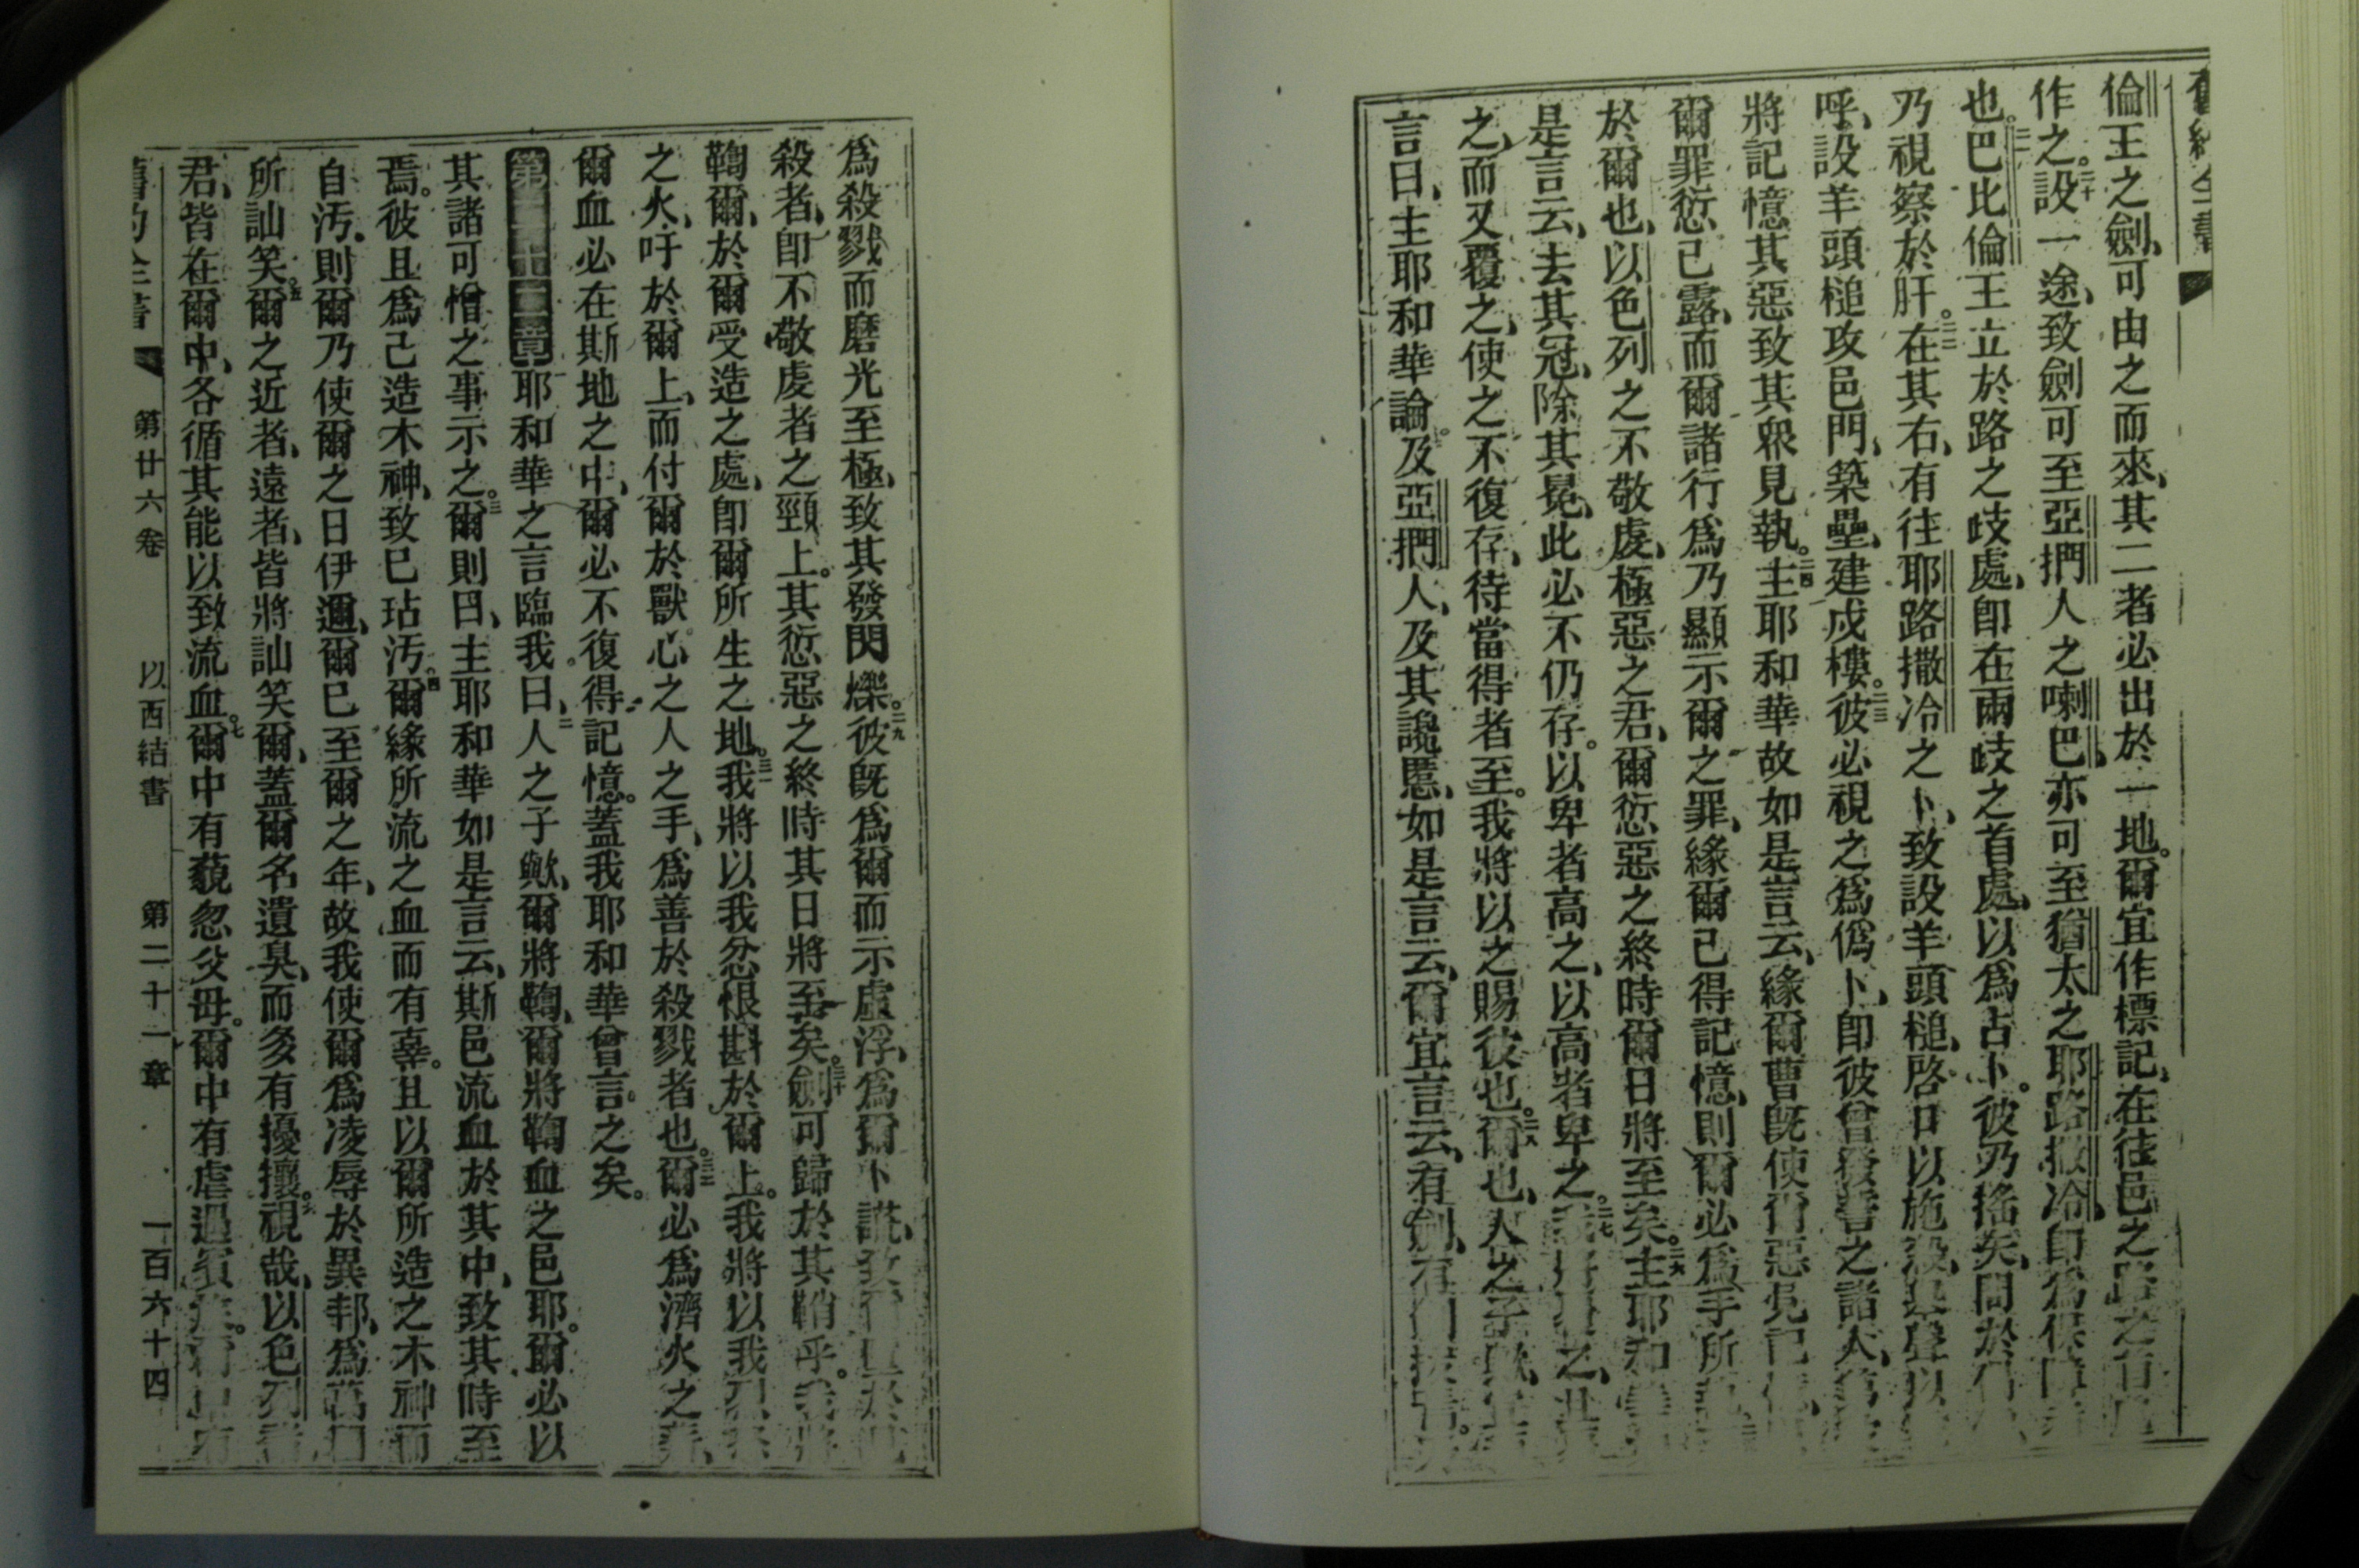 倫王之劍、可由之而來、其二者必出於一地。爾宜作標記、在往邑之路之首
作之。二十設一途、致劍可至亞捫人之喇巴、亦可至猶太之耶路撒冷、即為保障
也。二一巴比倫王立於路之岐處、即在兩岐之首處、以為占卜。彼乃搖矢、問於
乃視察於肝。二二在其右、有往耶路撒冷之卜、致設羊頭槌、啓口以施殺、
呼、設羊頭槌攻邑門、築壘、建戍樓。二三彼必視之為僞卜、即彼曾發誓之諸人、
將記憶其惡致其衆見執。二四主耶和華故如是言云、緣爾曹既使爾惡見記
爾罪愆已露、而爾諸行為乃顯示爾之罪、緣爾已得記憶、則爾必為手所
於爾也、以色列之不敬虔、極惡之君、爾愆惡之終時爾日將至矣。二六主耶和
是言云、去其冠、除其冕、此必不仍存。以卑者高之、以高者卑之。二七
之、而又覆之、使之不復存、待當得者至。我將以之賜彼也。二八爾也、人之子歟、
言曰、主耶和華論及亞捫人、及其讒慝、如是言云、爾宜言云、有劍、
為殺戮而磨光至極、致其發閃爍。二九彼既為爾而示虛浮、為爾卜謊、致
殺者、即不敬虔者之頸上。其愆惡之終時其日將至矣。三十劍可歸於其鞘乎。我將
鞫爾、於爾受造之處、即爾所生之地。三一我將以我忿恨斟於爾上。我將以我
之火、吁於爾上、而付爾於獸心之人之手、為善於殺戮者也。三二爾必為濟火之
爾血必在斯地之中、爾必不復得記憶。蓋我耶和華曾言之矣。
耶和華之言臨我曰、二人之子歟、爾將鞫、爾將鞫血之邑耶。爾必以
其諸可憎之事示之。三爾則曰、主耶和華如是言云、斯邑流血於其中、致其時至
焉。彼且為己造木神、致己玷汚。四爾緣所流之血而有辜。且以爾所造之木神而
自汚、則爾乃使爾之日伊邇、爾已至爾之年、故我使爾為凌辱於異邦、為萬
所訕笑。五爾之近者、遠者、皆將訕笑爾、蓋爾名遺臭、而多有擾攘。六視哉、以色列
君、皆在爾中、各循其能以致流血。七爾中有藐忽父母。爾中有虐過
舊約全書 第廿六卷 以西結書 第二十一章 一百六十四